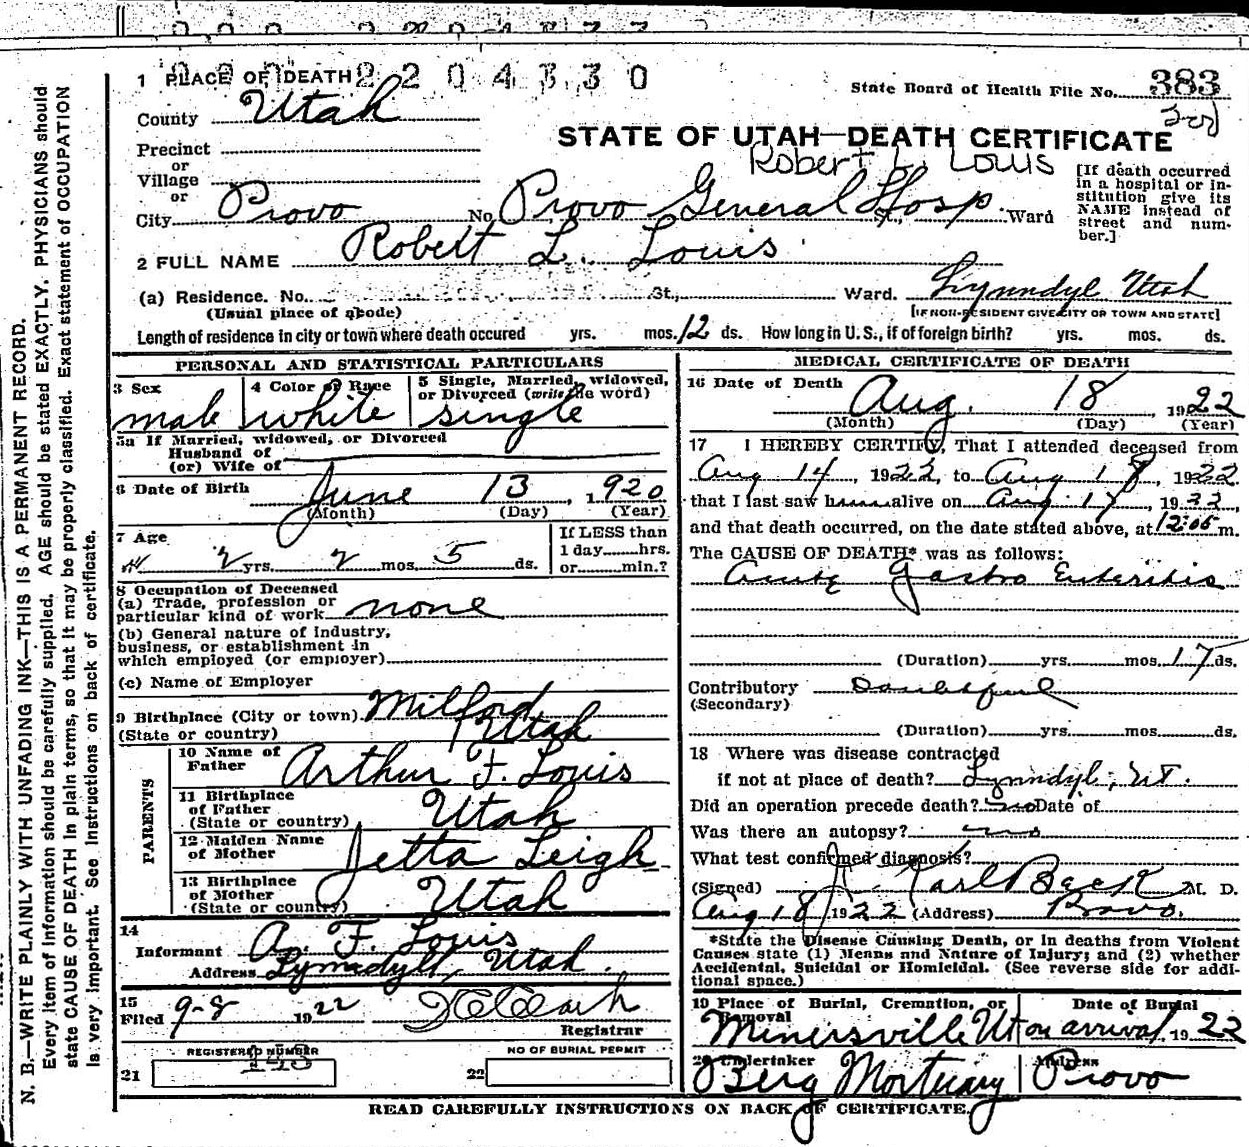 2204330
1 PLACE OF DEATH
State Board of Health File No. 383
County Utah
STATE OF UTAH—DEATH CERTIFICATE
Robert L. Louis
Precinct
or
Village
or
City Provo No. Provo General Hosp. St., Ward
[If death occurred in a hospital or institution give its NAME instead of street and number.]
2 FULL NAME Robert L. Louis
(a) Residence. No. St., Ward. Lynndyl Utah
(Usual place of abode) [IF NON-RESIDENT GIVE CITY OR TOWN AND STATE]
Length of residence in city or town where death occured yrs. mos. 12 ds. How long in U. S., if of foreign birth? yrs. mos. ds.
PERSONAL AND STATISTICAL PARTICULARS
3 Sex 4 Color or Race 5 Single, Married, widowed, or Divorced (write the word)
male white single
5a If Married, widowed, or Divorced
Husband of
(or) Wife of
6 Date of Birth June 13, 1920
(Month) (Day) (Year)
7 Age 2 yrs. 2 mos. 5 ds.
If LESS than
1 day hrs.
or min.?
8 Occupation of Deceased
(a) Trade, profession or
particular kind of work none
(b) General nature of Industry,
business, or establishment in
which employed (or employer)
(c) Name of Employer
9 Birthplace (City or town) Milford
(State or country) Utah
PARENTS
10 Name of
Father Arthur F. Louis
11 Birthplace
of Father
(State or country) Utah
12 Maiden Name
of Mother Jetta Leigh
13 Birthplace
of Mother
(State or country) Utah
14
Informant A. F. Louis
Address Lynndyll, Utah.
15
Filed 9-8 1922
Registrar
REGISTERED NUMBER
NO OF BURIAL PERMIT
21
22
MEDICAL CERTIFICATE OF DEATH
16 Date of Death Aug. 18, 1922
(Month) (Day) (Year)
17 I HEREBY CERTIFY, That I attended deceased from
Aug 14, 1922, to Aug 18, 1922
that I last saw him alive on Aug 17, 1922,
and that death occurred, on the date stated above, at 12:05 m.
The CAUSE OF DEATH* was as follows:
Acute Gastro Enteritis
(Duration) yrs. mos. 17 ds.
Contributory Doubtful
(Secondary)
(Duration) yrs. mos. ds.
18 Where was disease contracted
if not at place of death? Lynndyl, UT.
Did an operation precede death? no Date of
Was there an autopsy? no
What test confirmed diagnosis?
(Signed) J. Karl Beck M. D.
Aug 18, 1922 (Address) Provo.
*State the Disease Causing Death, or in deaths from Violent
Causes state (1) Means and Nature of Injury; and (2) whether
Accidental, Suicidal or Homicidal. (See reverse side for additional space.)
19 Place of Burial, Cremation, or Removal Date of Burial
Minersville Ut on arrival, 1922
20 Undertaker Address
Berg Mortuary Provo
READ CAREFULLY INSTRUCTIONS ON BACK OF CERTIFICATE.
N. B.—WRITE PLAINLY WITH UNFADING INK—THIS IS A PERMANENT RECORD.
Every item of information should be carefully supplied. AGE should be stated EXACTLY. PHYSICIANS should
state CAUSE OF DEATH in plain terms, so that it may be properly classified. Exact statement of OCCUPATION
is very important. See Instructions on back of certificate.